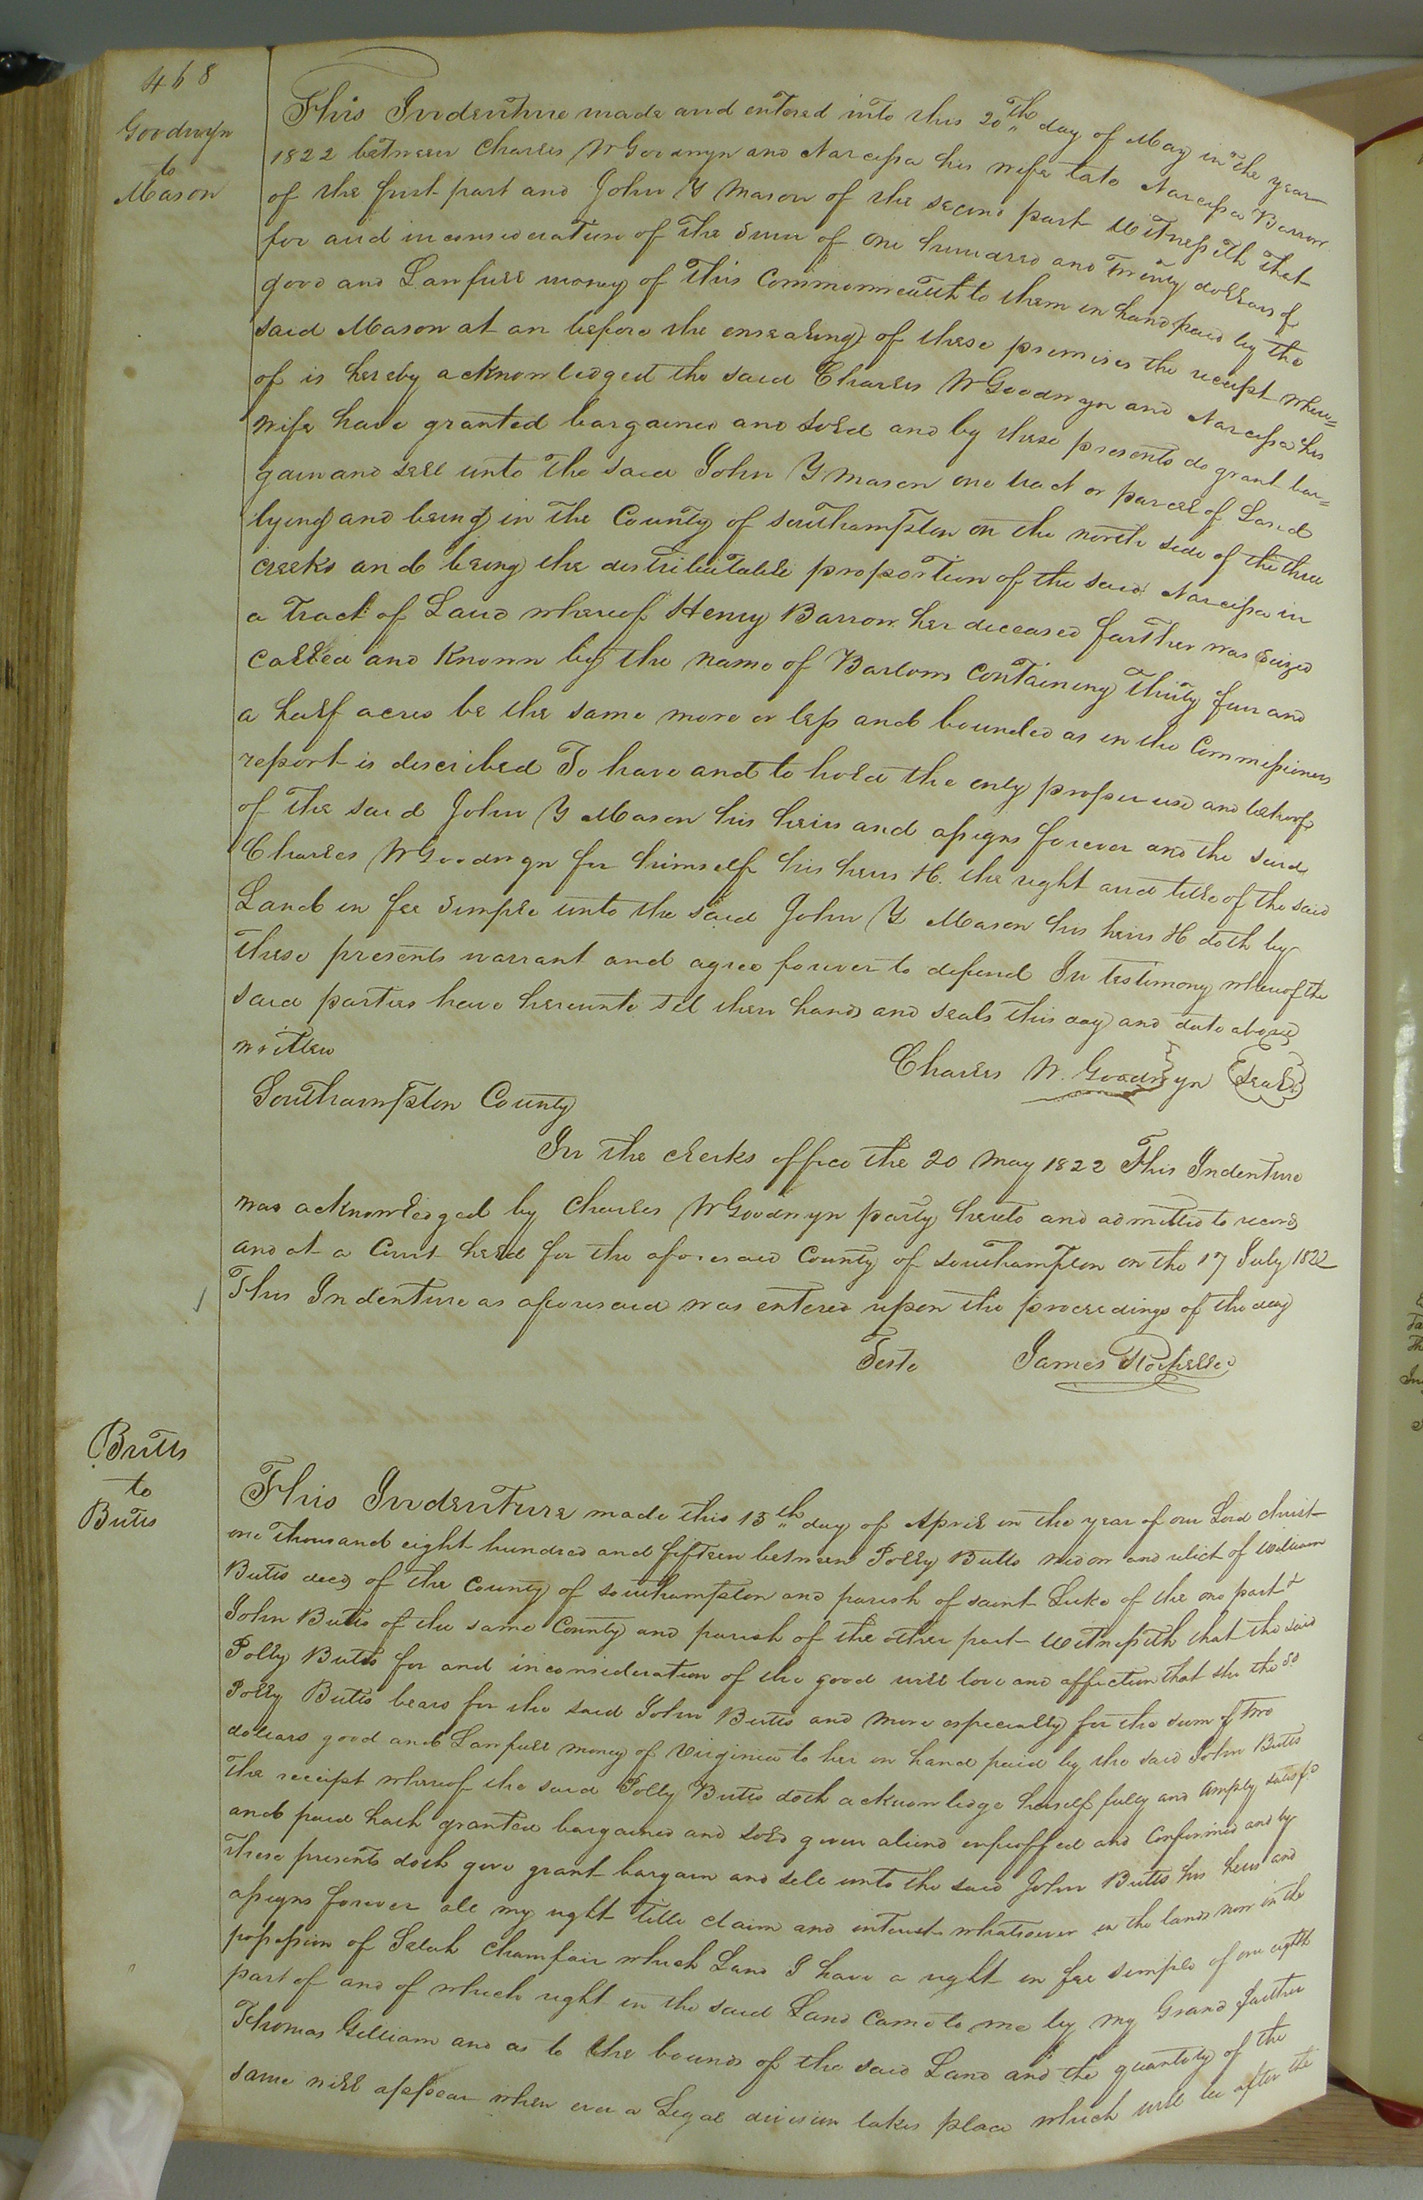 468
Goodwyn
to
Mason
This Indenture made and entered into this 20th day of May in the year
1822 between Charles W Goodwyn and Narcissa his wife late Narcissa Barrow
of the first part and John Y Mason of the second part Witnesseth that
for and in consideration of the sum of one hundred and twenty dollars of
good and Lawfull money of this Commonwealth to them in hand paid by the
said Mason at an before the ensealing of these premises the receipt where=
of is hereby acknowledged the said Charles W Goodwyn and Narcissa his
wife have granted bargained and sold and by these presents do grant bar=
gain and sell unto the said John Y Mason one tract or parcel of Land
lying and being in the County of Southampton on the north side of the three
creeks and being the distributable proportion of the said Narcissa in
a Tract of Land whereof Henry Barrow her deceased farther was seized
called and known by the name of containing thirty four and
a half acres be the same more or less and bounded as in the Commissioners
report is described To have and to hold the only proper use and behoof
of the said John Y Mason his heirs and assigns forever and the said
Charles W Goodwyn for himself his heirs &c. the right and title of the said
Land in fee simple unto the said John Y Mason his heirs &c doth by
these presents warrant and agree forever to defend In testimony whereof the
said parties have hereunto set their hands and seals this day and date above
written
Charles W. Goodwyn Seal
Southampton County
In the clerks office the 20 May 1822 This Indenture
was acknowledged by Charles W Goodwyn party hereto and admitted to record
and at a Court held for the aforesaid County of Southampton on the 17 July 1822
This Indenture as aforesaid was entered upon the proceedings of the day
Teste James Rochelle
Butts
to
Butts
This Indenture made this 15th day of April in the year of our Lord christ
one thousand eight hundred and fifteen between Polly Butts widow and relict of William
Butts decd of the County of Southampton and parish of saint Luke of the one part &
John Butts of the same County and parish of the other part Witnesseth that the said
Polly Butts for and in consideration of the good will love and affection that she the sd
Polly Butts bears for the said John Butts and more especially for the sum of two
dollars good and Lawfull money of Virginia to her in hand paid by the said John Butts
The receipt whereof the said Polly Butts doth acknowledge herself fully and amply satisfd
and paid hath granted bargained and sold given aliend enfeoffed and Confirmed and by
These presents doth give grant bargain and sell unto the said John Butts his heirs and
assigns forever all my right title claim and interest whatsoever in the lands now in the
possession of Selah which Land I have a right in fee simple of one eighth
part of and of which right in the said Land came to me by my Grand farther
Thomas Gilliam and as to the bounds of the said Land and the quantity of the
same will appear when ever a Legal division takes place which will be after the